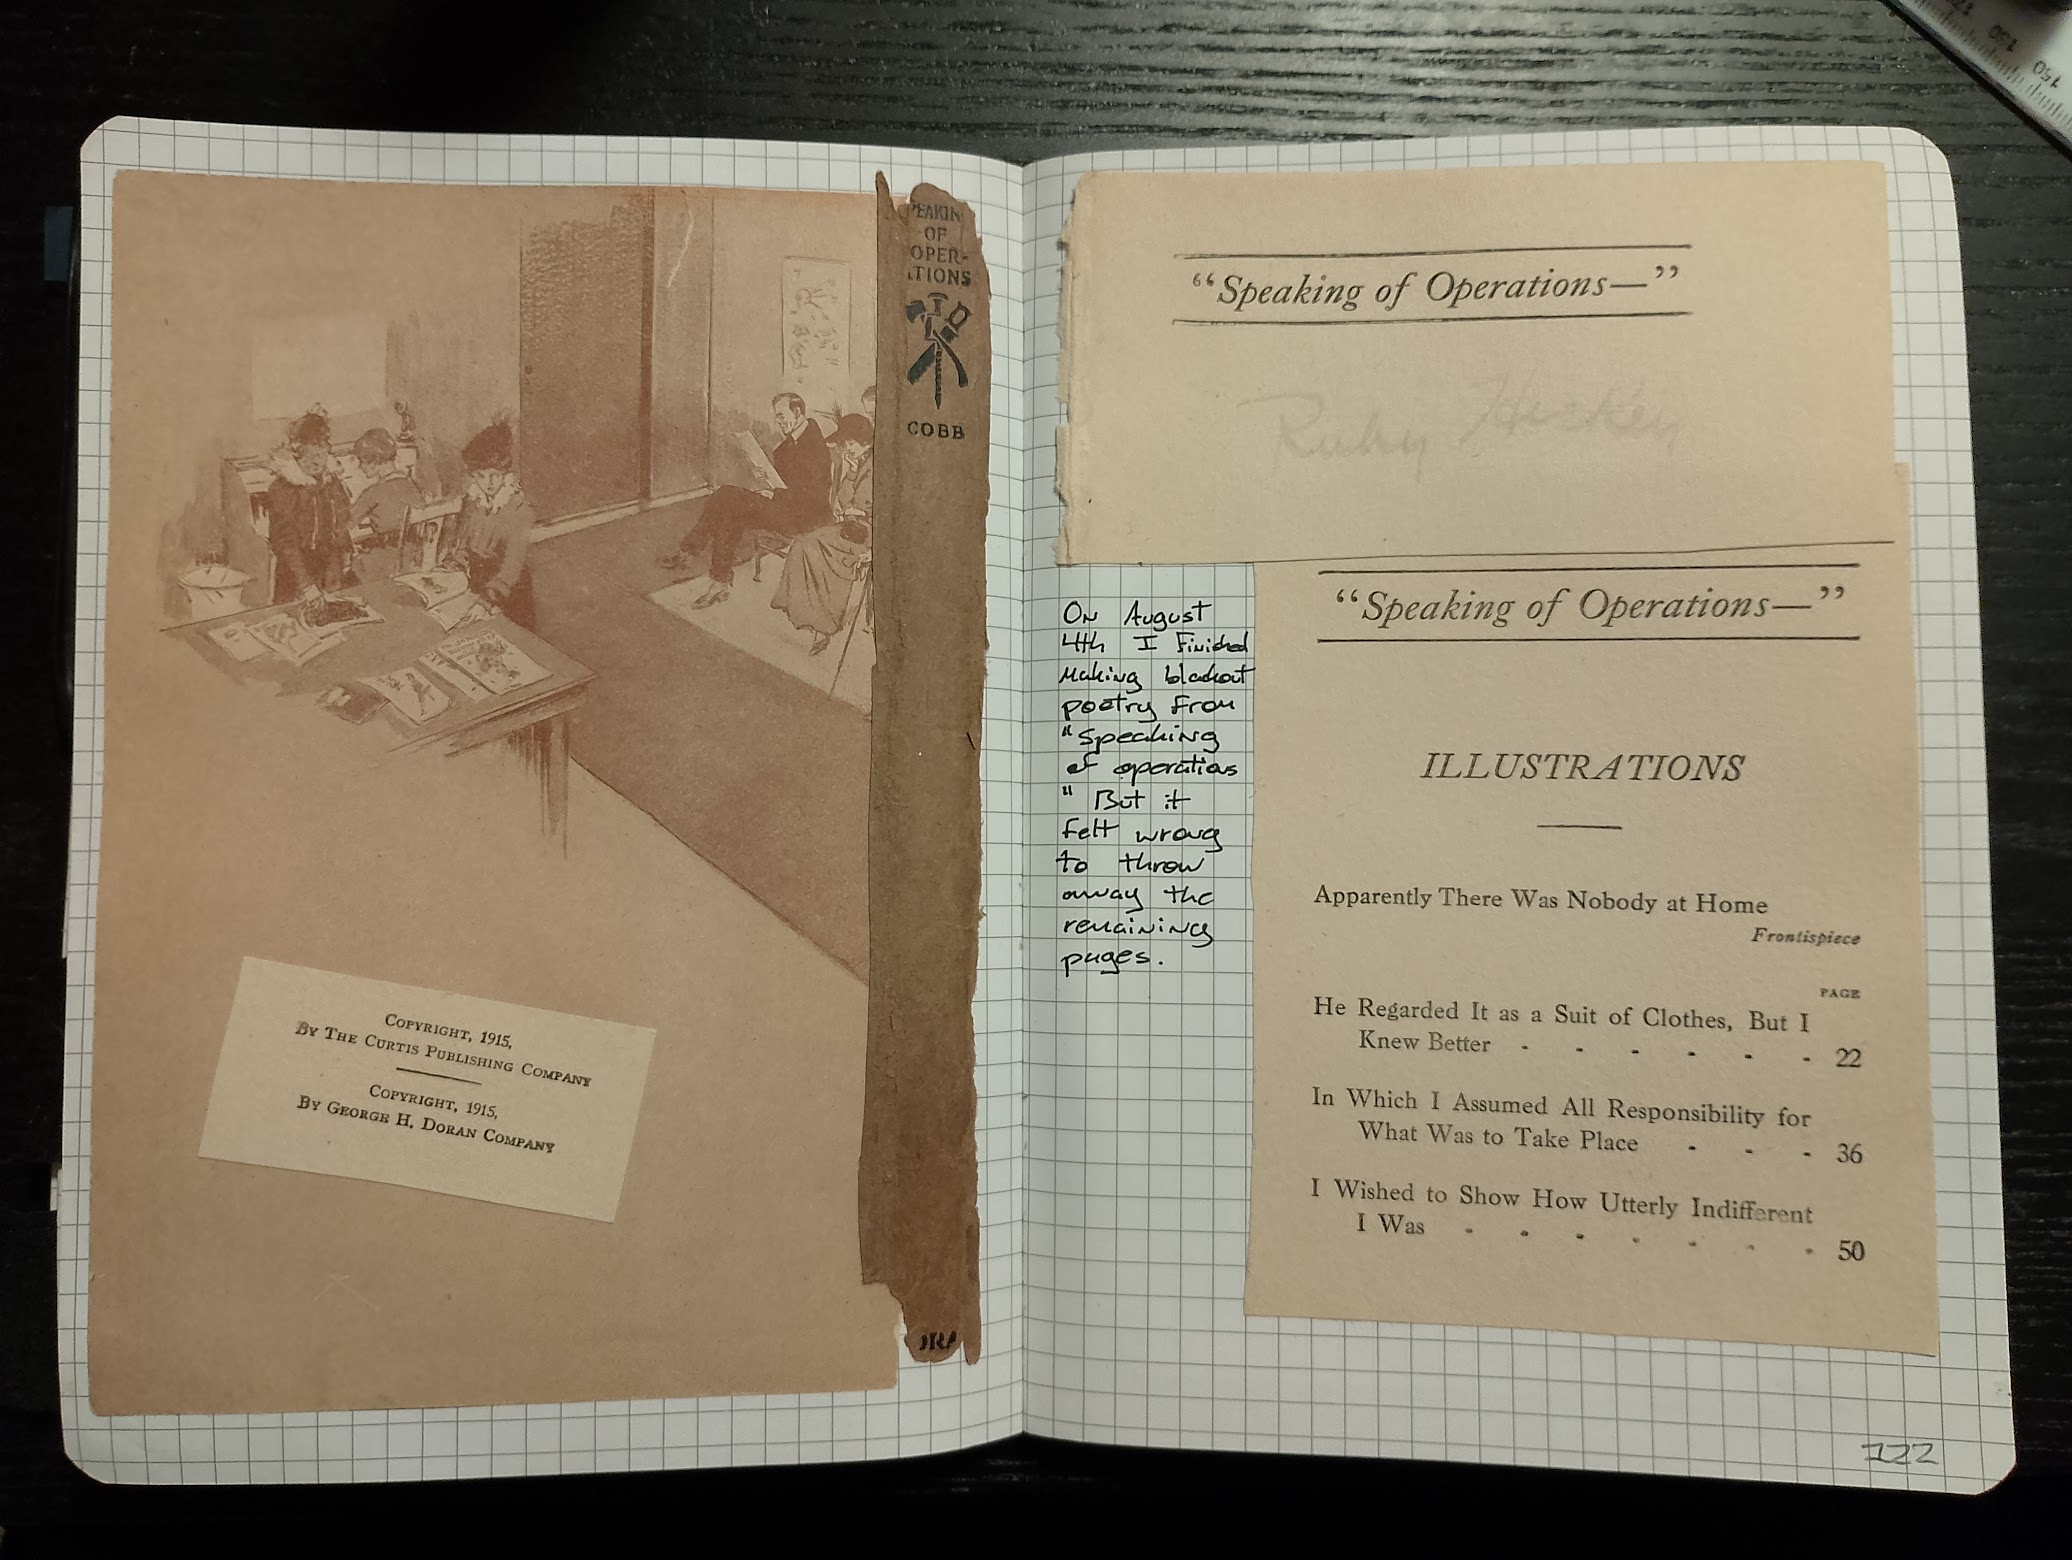 PEAKIN
OF
OPER-
ATIONS
COBB
COPYRIGHT, 1915,
BY THE CURTIS PUBLISHING COMPANY
COPYRIGHT, 1915,
BY GEORGE H. DORAN COMPANY
"Speaking of Operations—"
Ruby
On August
4th I Finished
making blackout
poetry From
"Speaking
of operations
" But it
Felt wrong
to throw
away the
remaining
pages.
"Speaking of Operations—"
ILLUSTRATIONS
Apparently There Was Nobody at Home
Frontispiece
PAGE
He Regarded It as a Suit of Clothes, But I
Knew Better - - - - - - 22
In Which I Assumed All Responsibility for
What Was to Take Place - - - 36
I Wished to Show How Utterly Indifferent
I Was - - - - - - - 50
122
130
150